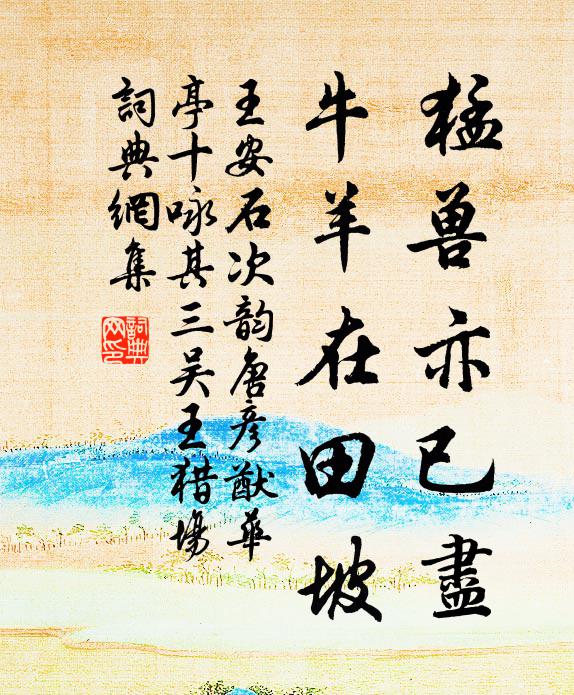 猛兽亦已盡
牛羊在田坡
王安石次韵唐彦猷華
亭十咏其三吴王猎場
詞典網集
詞典網印